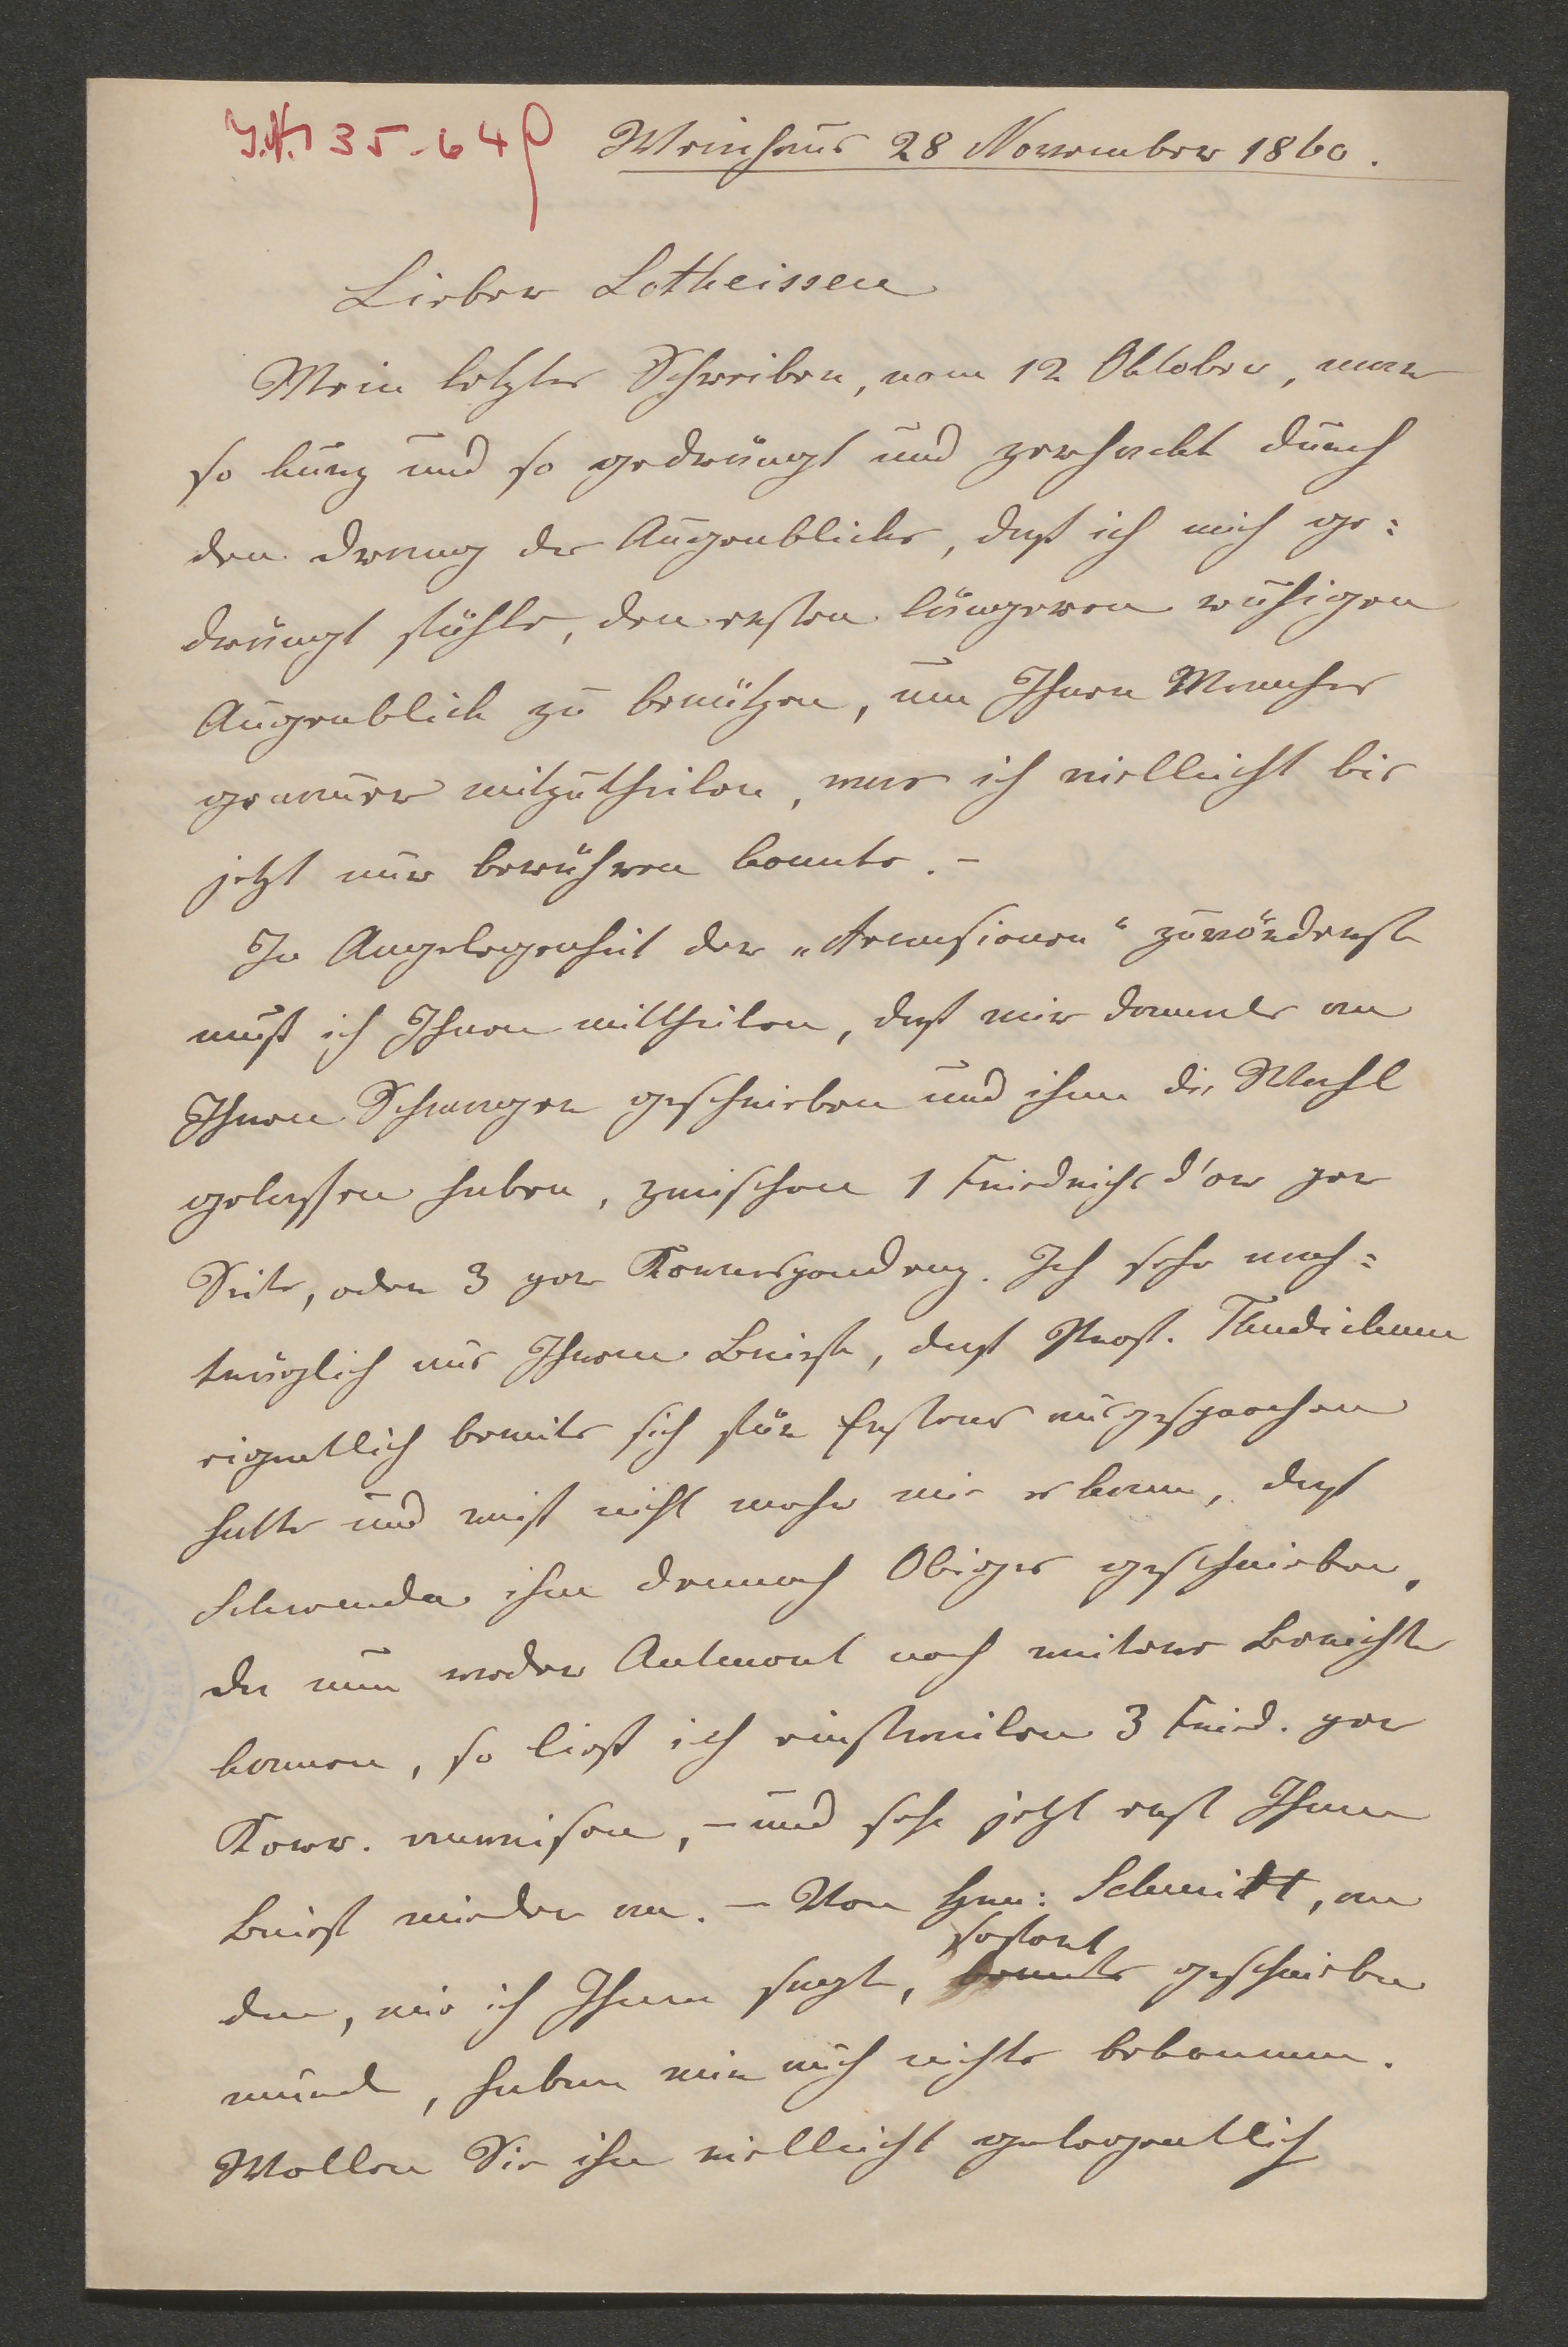 J.N. 35.649
Weinhaus 28 November 1860.
Lieber Lotheissen
Mein letztes Schreiben, vom 12 Oktober, war
so kurz und so gedrängt und zerhackt durch
den Drang des Augenblicks, daß ich mich ge=
drängt fühle, den ersten längeren ruhigen
Augenblick zu benützen, um Ihnen Manches
genauer mitzutheilen, was ich vielleicht bis
jetzt nur berühren konnte. –
In Angelegenheit der zuvörderst
muß ich Ihnen mittheilen, daß wir damals an
Ihren Schwager geschrieben und ihm die Wahl
gelassen haben, zwischen 1 Friedrichs d'or per
Seite, oder 3 per Korrespondenz. Ich sehe nach=
träglich aus Ihrem Briefe, daß Prof. Thudichum
eigentlich bereits sich für Ersteres ausgesprochen
hatte und weiß nicht mehr wie es kam, daß
Schwenda ihm dennoch Obiges geschrieben,
da nun weder Antwort noch weitere Berichte
kamen, so ließ ich einstweilen 3 Fried. per
Korr. anweisen, – und sehe jetzt erst Ihren
Brief wieder an. – Von Hrn: Schmidt, an
den, wie ich Ihnen sagte, sofort geschrieben
wurde, haben wir auch nichts bekommen.
Wollen Sie ihn vielleicht gelegentlich